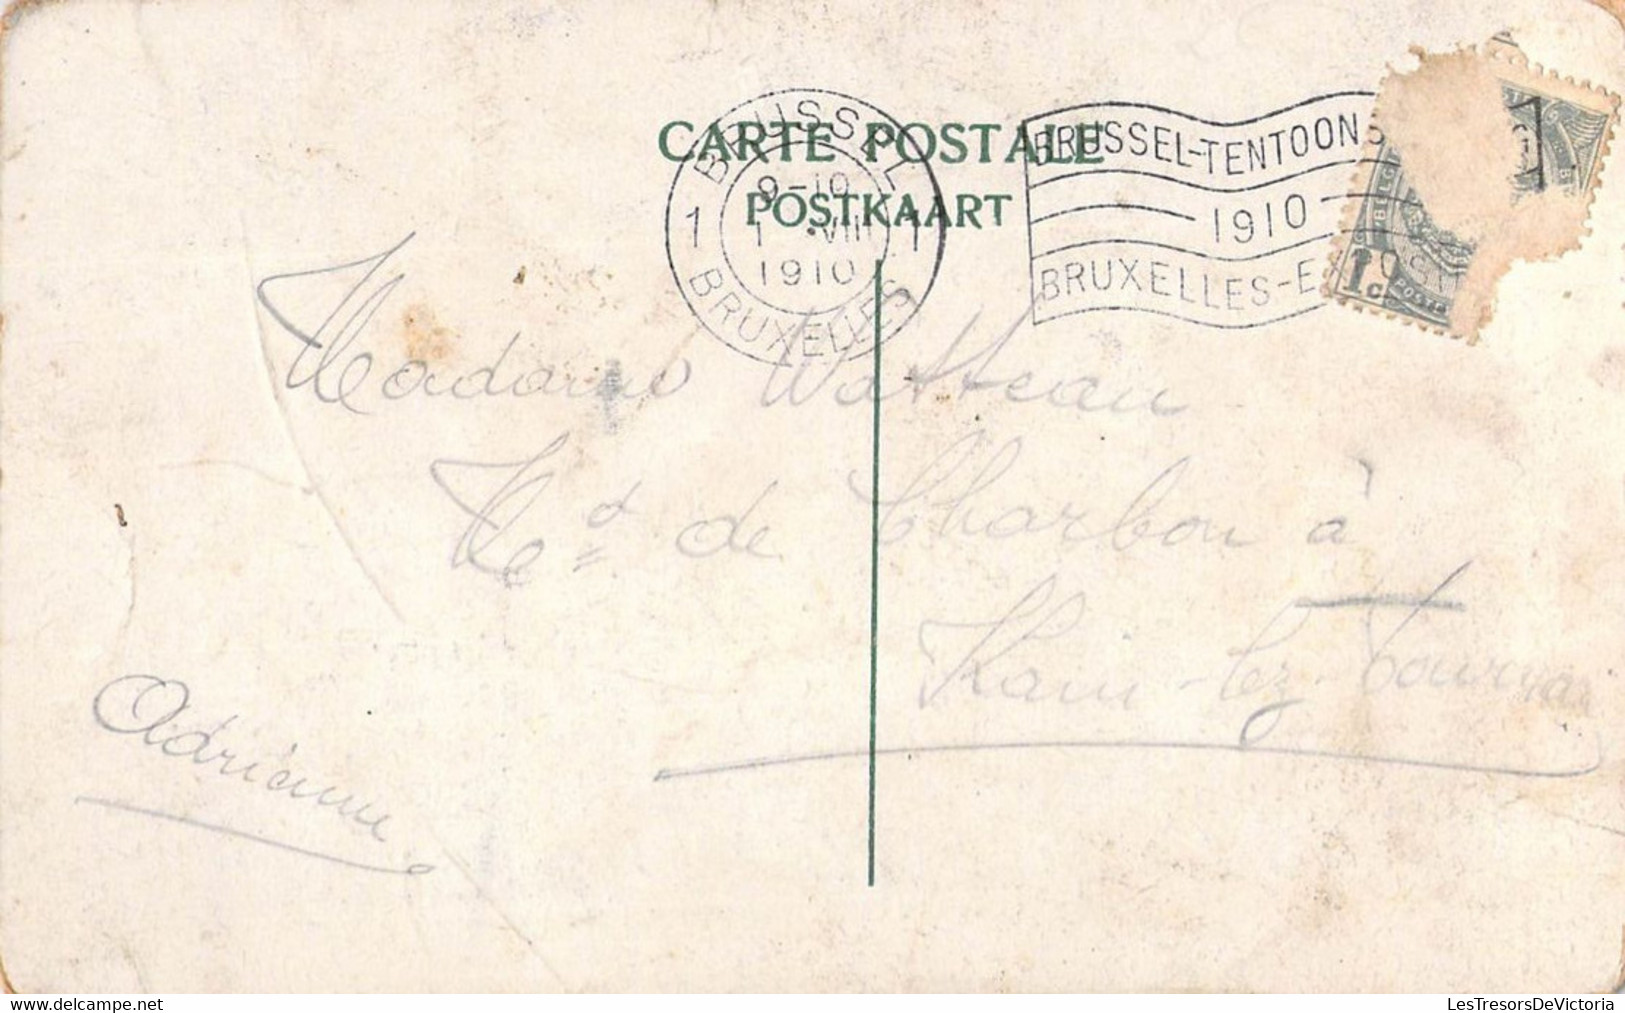 CARTE POSTALE
POSTKAART
BRUSSEL
9-10
1 1 VIII 1
1910
BRUXELLES
BRUSSEL-TENTOONS
1910
BRUXELLES-EX
BELG
1c
POSTE
Madame Watteau
Mde de Charbon à
Kain-lez-Tournai
Adrienne
LesTresorsDeVictoria